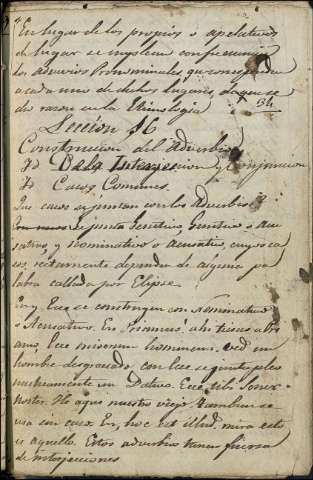 En lugar de los propios o apelativos
de lugar se emplean con frecuencia
los adverbios Pronominales, que corresponden
a cada uno de dichos lugares, de que se
dio razon en la Etimologia
34
Sección 16
Construccion del Adverbio
De la Interjeccion y Conjuncion
Casos Comunes.
Que casos se juntan con los Adverbios?
se junta Genitivo, Dativo o Acu-
sativo, y nominativo o acusativo, cuyos ca-
sos rectamente dependen de alguna pa-
labra callada por Elipse.
En y Ecce se construyen con Nominativo
o Acusativo. En Priamus, ahi tienes a Pri-
amo, Ecce miserum hominem, ved un
hombre desgraciado, con Ecce se junta pleo-
nasticamente un Dativo. Ecce tibi
noster. He aqui nuestro viejo. Tambien se
usa sin caso. En, hoc est illud, mira esto
es aquello. Estos adverbios tienen fuerza
de interjecciones